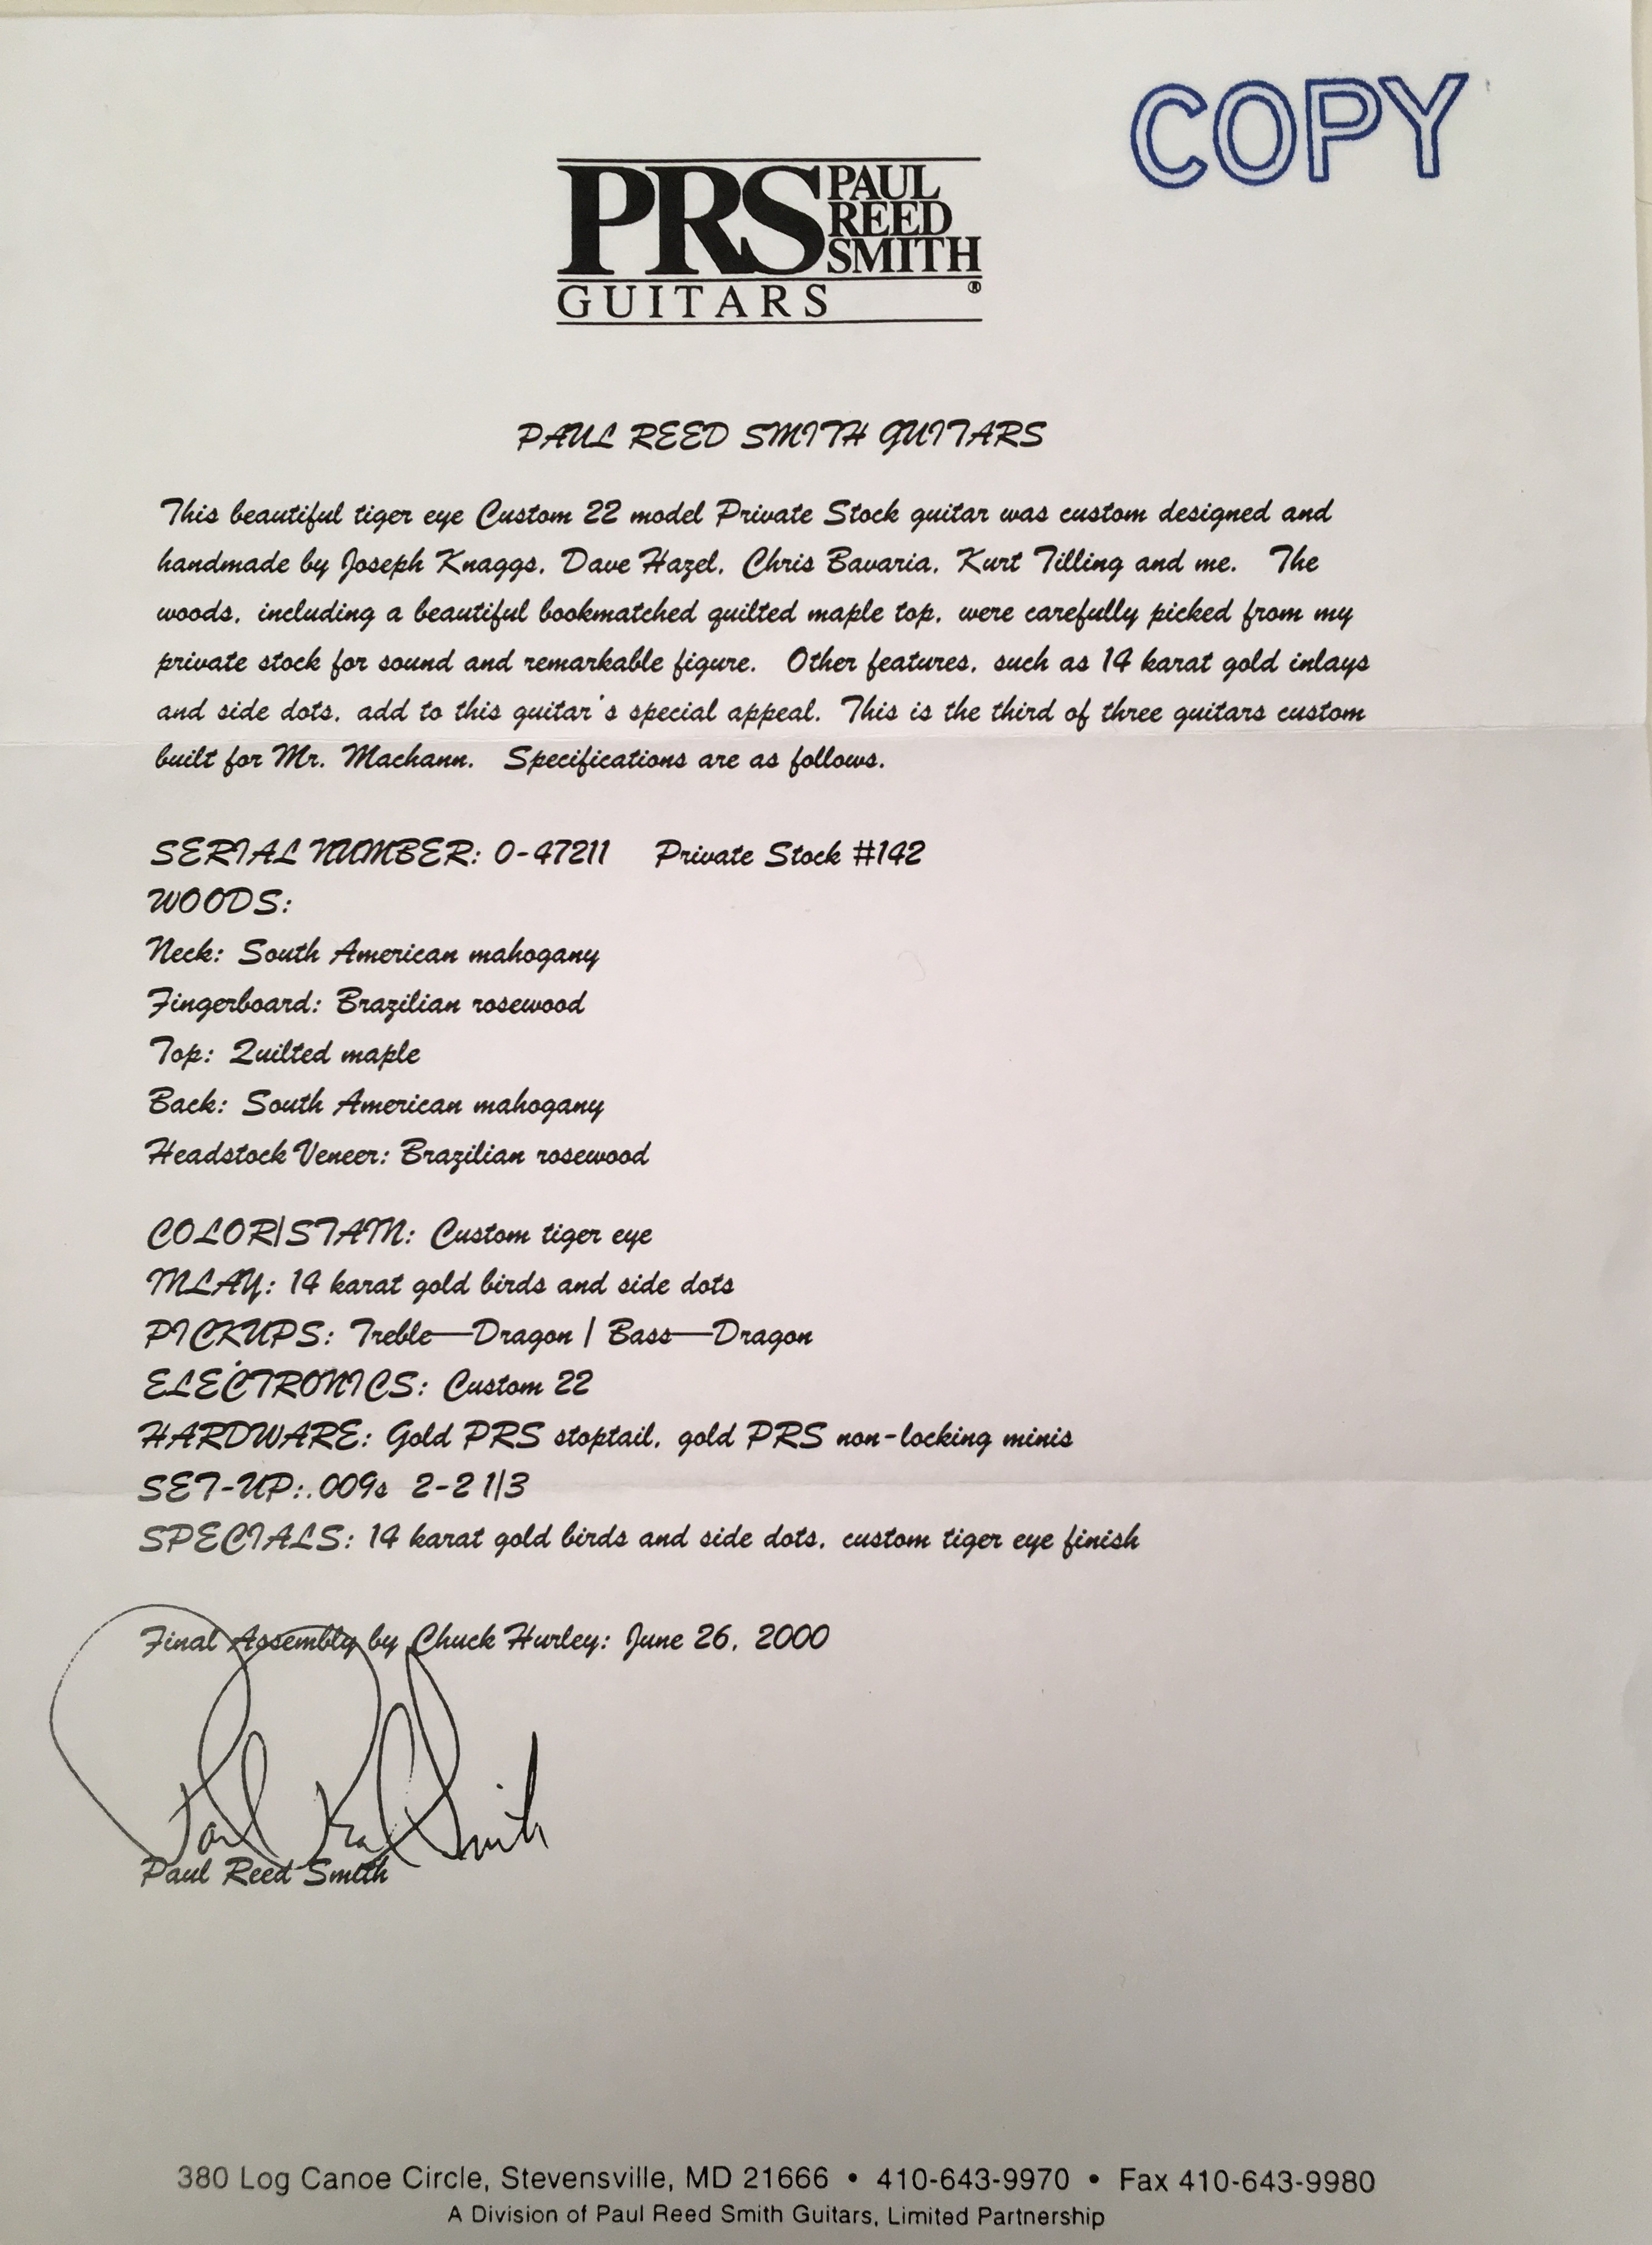 COPY
PRS PAUL REED SMITH
GUITARS ®
PAUL REED SMITH GUITARS
This beautiful tiger eye Custom 22 model Private Stock guitar was custom designed and
handmade by Joseph Knaggs, Dave Hazel, Chris Bavaria, Kurt Tilling and me. The
woods, including a beautiful bookmatched quilted maple top, were carefully picked from my
private stock for sound and remarkable figure. Other features, such as 14 karat gold inlays
and side dots, add to this guitar's special appeal. This is the third of three guitars custom
built for Mr. Machann. Specifications are as follows.
SERIAL NUMBER: 0-47211 Private Stock #142
WOODS:
Neck: South American mahogany
Fingerboard: Brazilian rosewood
Top: Quilted maple
Back: South American mahogany
Headstock Veneer: Brazilian rosewood
COLOR/STAIN: Custom tiger eye
INLAY: 14 karat gold birds and side dots
PICKUPS: Treble—Dragon / Bass—Dragon
ELECTRONICS: Custom 22
HARDWARE: Gold PRS stoptail, gold PRS non-locking minis
SET-UP: .009s 2-2 1/3
SPECIALS: 14 karat gold birds and side dots, custom tiger eye finish
Final Assembly by Chuck Hurley: June 26, 2000
Paul Reed Smith
Paul Reed Smith
380 Log Canoe Circle, Stevensville, MD 21666 • 410-643-9970 • Fax 410-643-9980
A Division of Paul Reed Smith Guitars, Limited Partnership